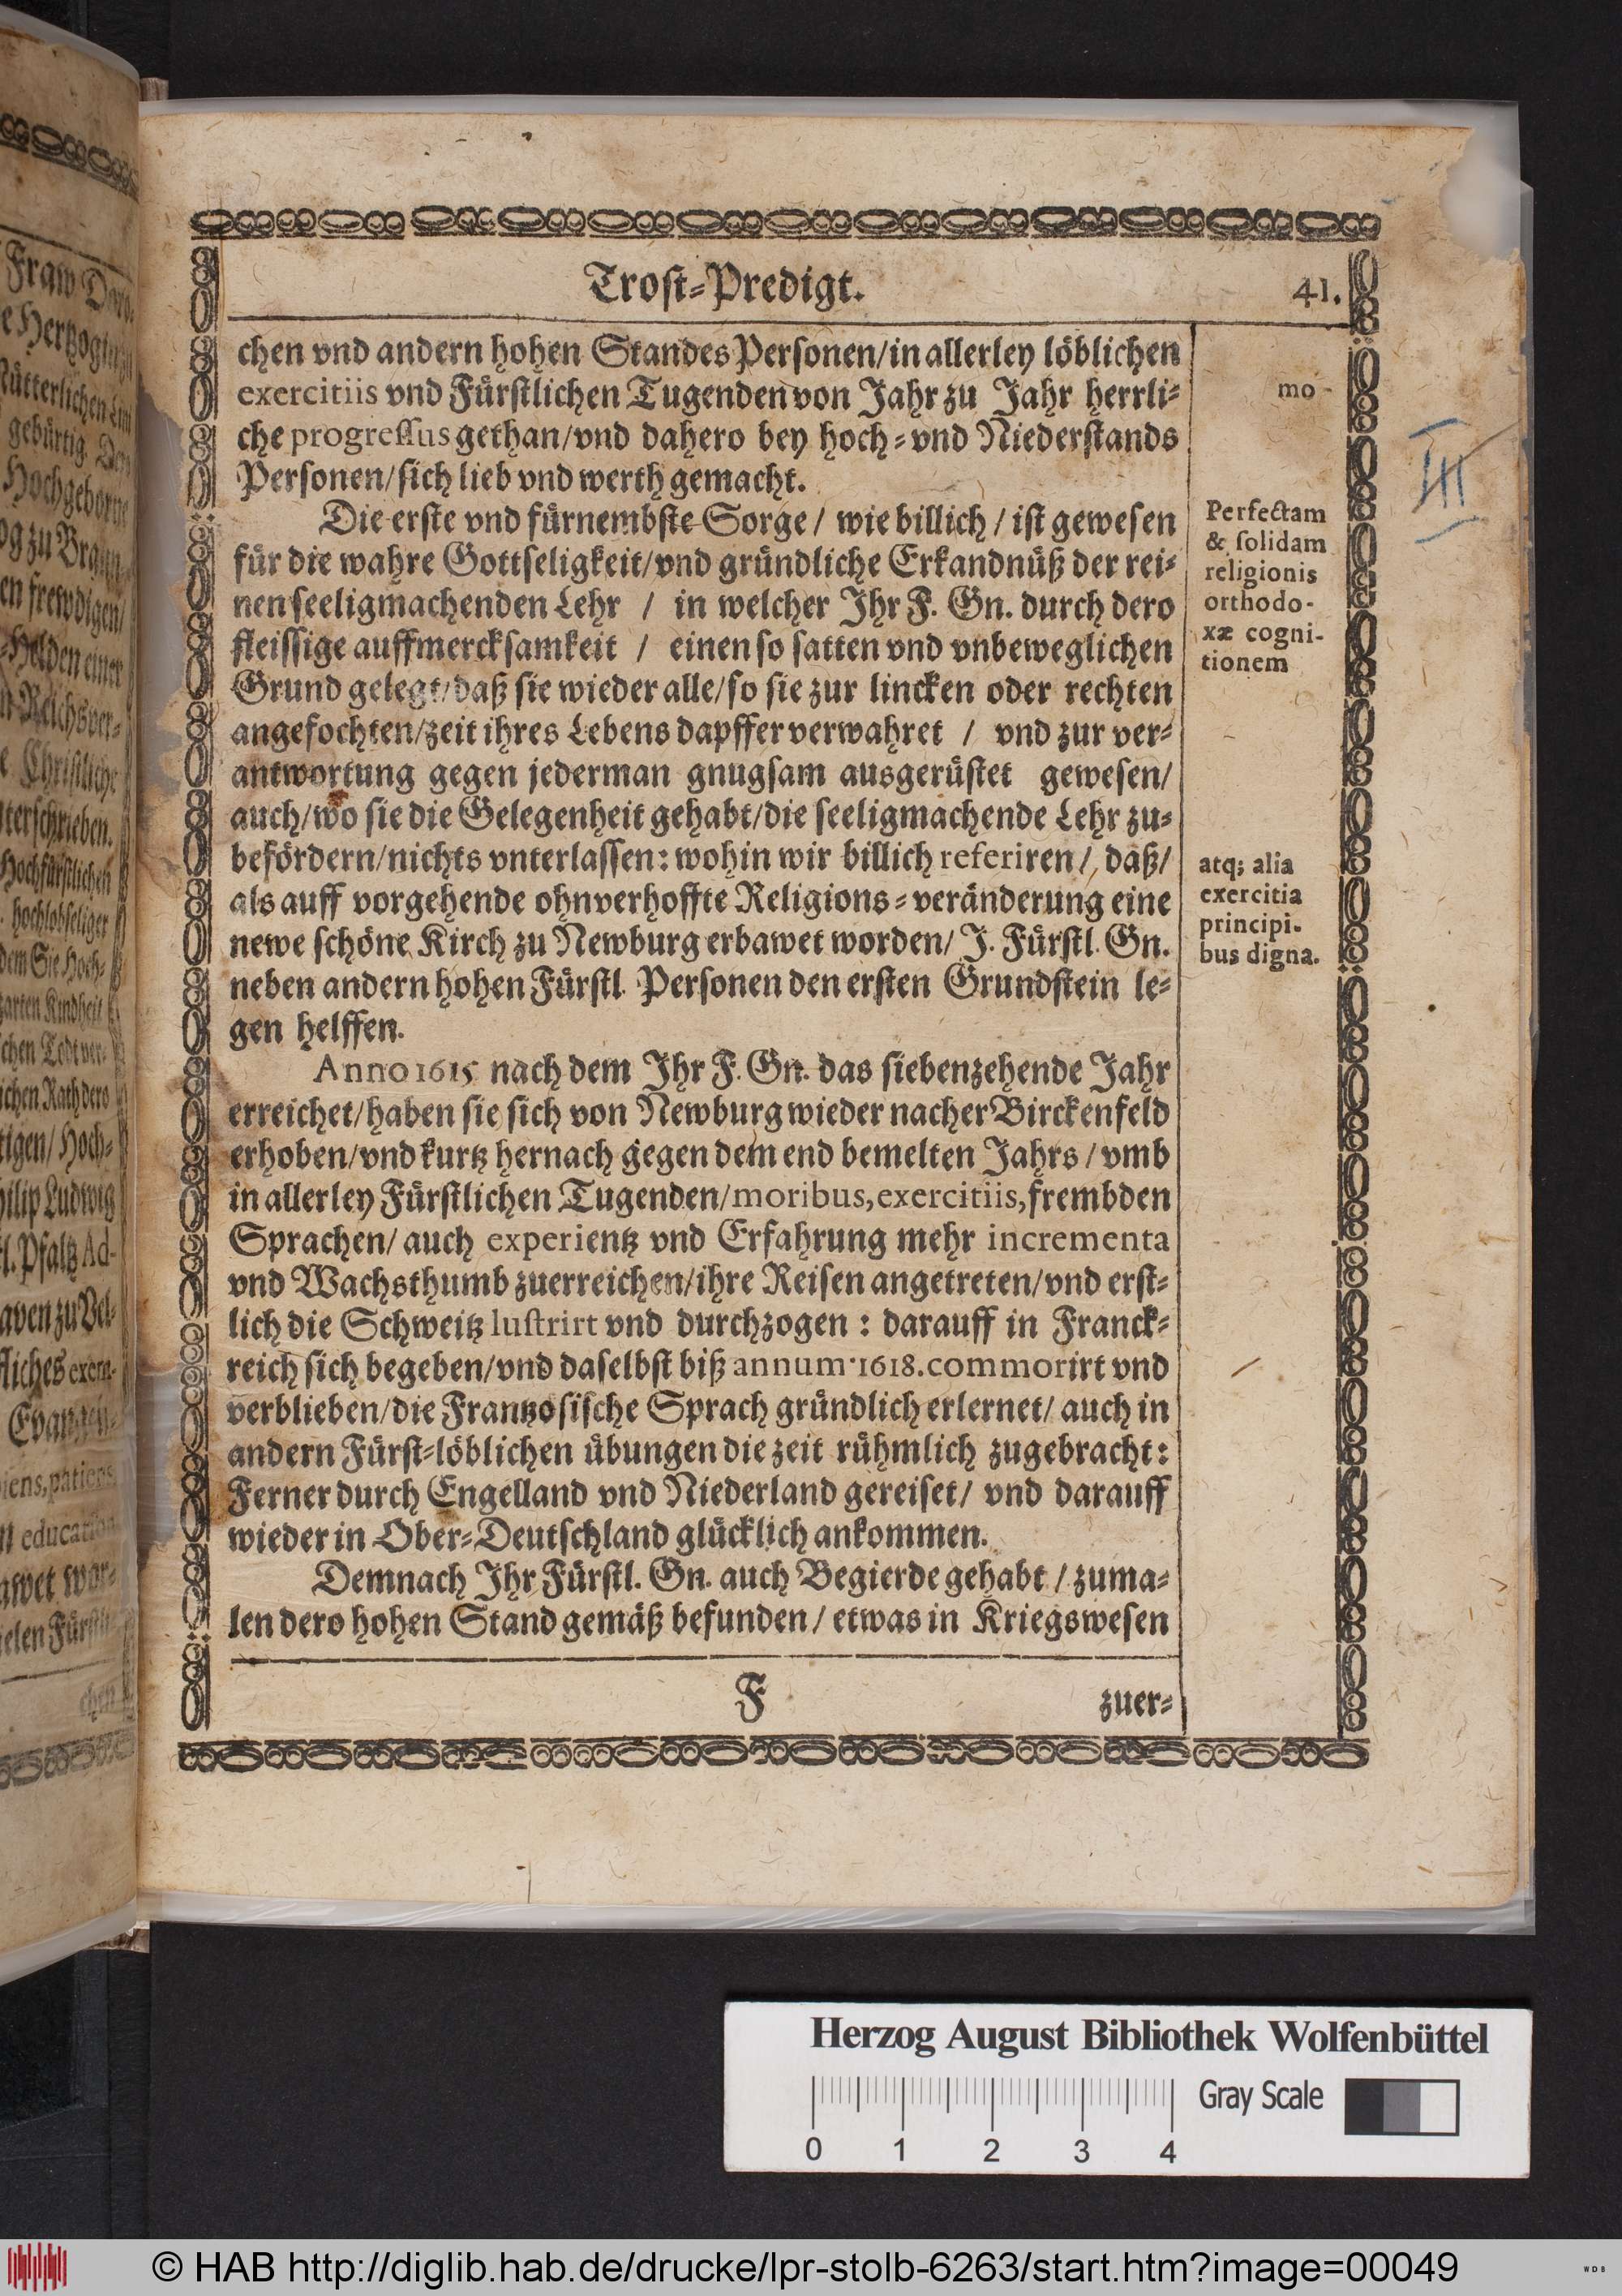 Trost-Predigt.
41.
chen vnd andern hohen Standes Personen/in allerley löblichen
exercitiis vnd Fürstlichen Tugenden von Jahr zu Jahr herrli-
che progressus gethan/vnd dahero bey hoch-vnd Niederstands
Personen/sich lieb vnd werth gemacht.
Die erste vnd fürnembste Sorge/ wie billich/ ist gewesen
für die wahre Gottseligkeit/vnd gründliche Erkandnüß der rei-
nen seeligmachenden Lehr / in welcher Ihr F. Gn. durch dero
fleissige auffmercksamkeit / einen so satten vnd vnbeweglichen
Grund gelegt/daß sie wieder alle/so sie zur lincken oder rechten
angefochten/zeit ihres Lebens dapffer verwahret / vnd zur ver-
antwortung gegen jederman gnugsam ausgerüstet gewesen/
auch/wo sie die Gelegenheit gehabt/die seeligmachende Lehr zu-
befördern/nichts vnterlassen: wohin wir billich referiren/, daß/
als auff vorgehende ohnverhoffte Religions-veränderung eine
newe schöne Kirch zu Newburg erbawet worden/ J. Fürstl. Gn.
neben andern hohen Fürstl. Personen den ersten Grundstein le-
gen helffen.
Anno 1615 nach dem Ihr F. Gn. das siebenzehende Jahr
erreichet/haben sie sich von Newburg wieder nacher Birckenfeld
erhoben/vnd kurtz hernach gegen dem end bemelten Jahrs/vmb
in allerley Fürstlichen Tugenden/moribus, exercitiis, frembden
Sprachen/ auch experientz vnd Erfahrung mehr incrementa
vnd Wachsthumb zuerreichen/ihre Reisen angetreten/vnd erst-
lich die Schweitz lustrirt vnd durchzogen : darauff in Franck-
reich sich begeben/vnd daselbst biß annum 1618. commorirt vnd
verblieben/die Frantzosische Sprach gründlich erlernet/ auch in
andern Fürst-löblichen übungen die zeit rühmlich zugebracht:
Ferner durch Engelland vnd Niederland gereiset/ vnd darauff
wieder in Ober-Deutschland glücklich ankommen.
Demnach Ihr Fürstl. Gn. auch Begierde gehabt / zuma-
len dero hohen Stand gemäß befunden/ etwas in Kriegswesen
F
zuer-
mo-
Perfectam
& solidam
religionis
orthodo-
xæ cogni-
tionem
atq; alia
exercitia
principi-
bus digna.
III
Herzog August Bibliothek Wolfenbüttel
0 1 2 3 4
Gray Scale
© HAB http://diglib.hab.de/drucke/lpr-stolb-6263/start.htm?image=00049
WDB